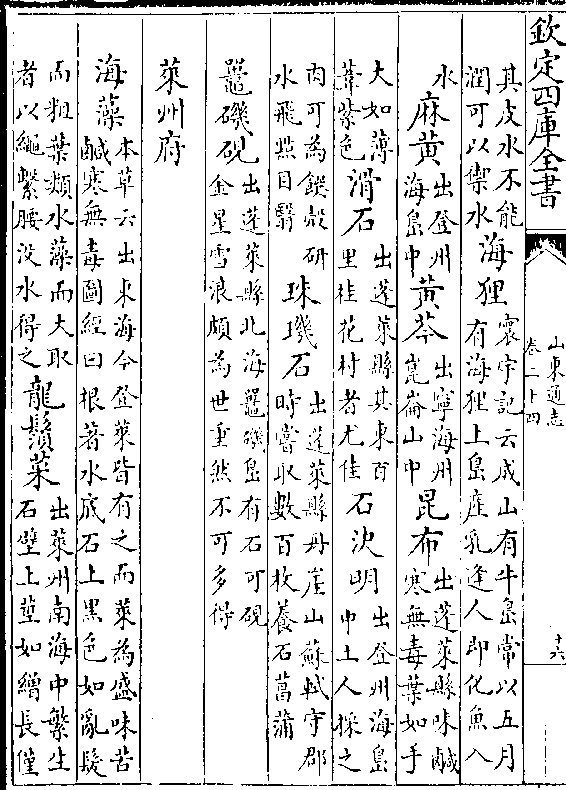 欽定四庫全書
山東通志
卷二十四
十六
其皮水不能
潤可以禦水
海狸
寰宇記云成山有牛島常以五月
有海狸上島産乳逢人即化魚入
水
麻黄
出登州
海島中
黄芩
出寧海州
崑崙山中
昆布
出蓬萊縣味鹹
寒無毒葉如手
大如薄
葦紫色
滑石
出蓬萊縣其東百
里桂花村者尤佳
石決明
出登州海島
中土人採之
肉可為饌殻研
水飛㸃目翳
珠璣石
出蓬萊縣丹崖山蘇軾守郡
時嘗取數百枚養石菖蒲
鼉磯硯
出蓬萊縣北海鼉磯島有石可硯
金星雪浪頗為世重然不可多得
萊州府
海藻
本草云出東海今登萊皆有之而萊為盛味苦
鹹寒無毒圖經曰根著水底石上黑色如亂髮
而粗葉類水藻而大取
者以繩繫腰没水得之
龍鬚菜
出萊州南海中繁生
石壁上莖如繒長僅